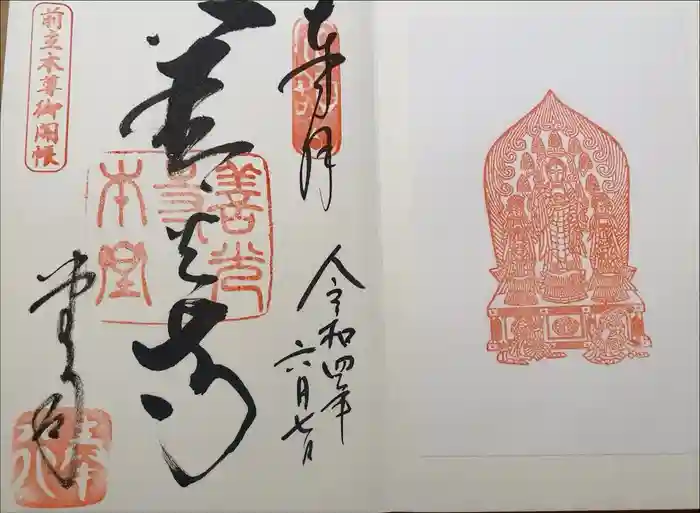 奉拝
令和四年
六月七日
善光寺
善光寺本堂
前立本尊御開帳